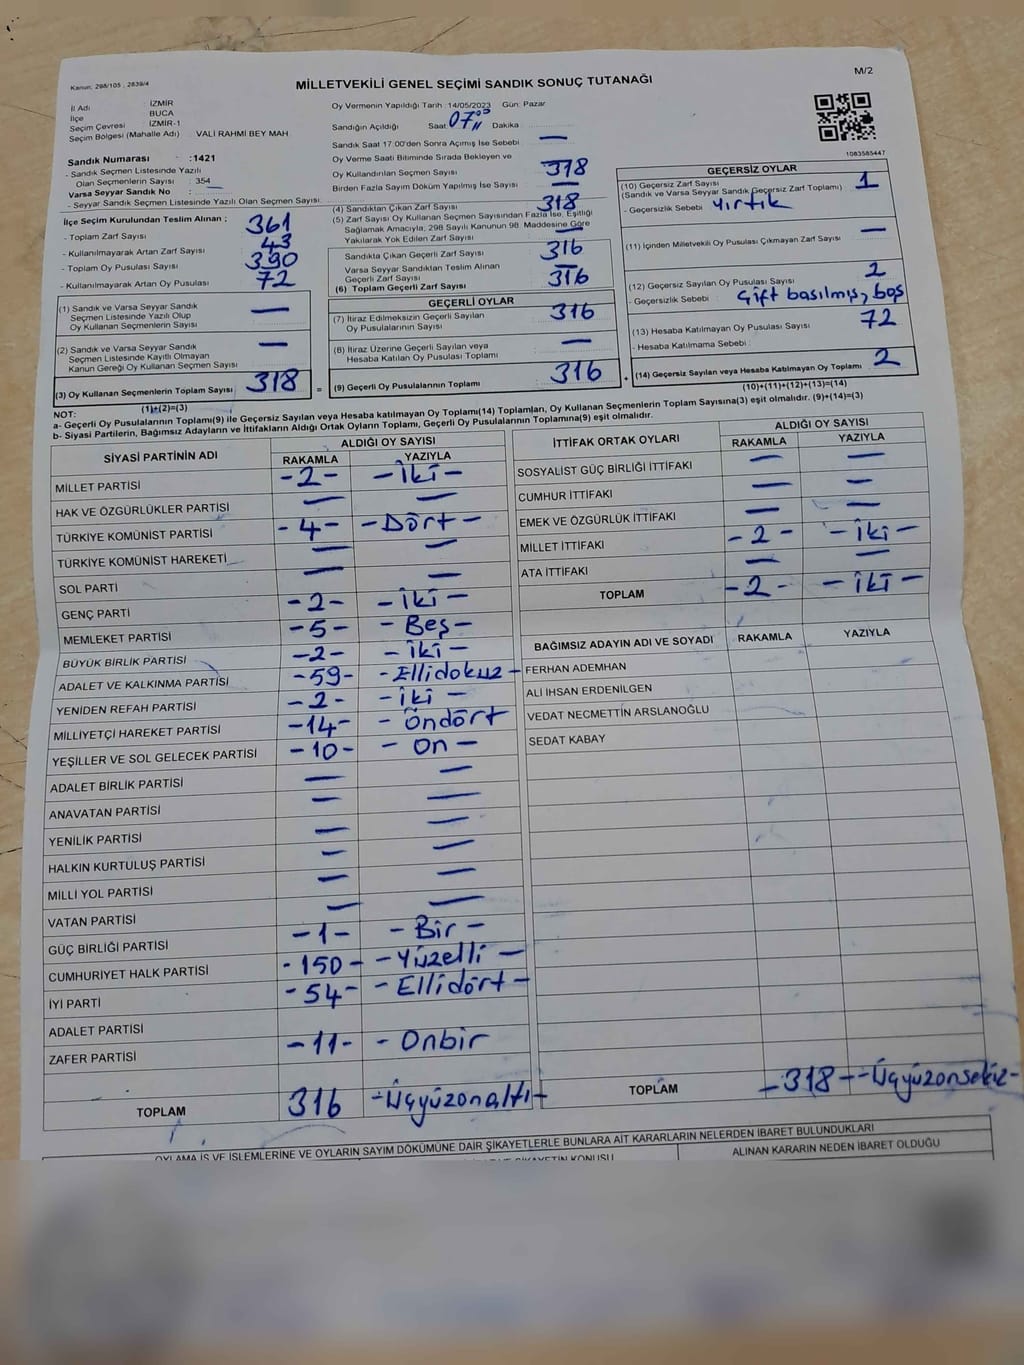 Kanun, 298/105 , 2839/4
MİLLETVEKİLİ GENEL SEÇİMİ SANDIK SONUÇ TUTANAĞI
M/2
İl Adı : İZMİR
İlçe : BUCA
Seçim Çevresi : İZMİR-1
Seçim Bölgesi (Mahalle Adı) : VALİ RAHMİ BEY MAH.
Oy Vermenin Yapıldığı Tarih : 14/05/2023 Gün: Pazar
Sandığın Açıldığı Saat: 07 Dakika :
Sandık Saat 17.00'den Sonra Açımış İse Sebebi : —
Oy Verme Saati Bitiminde Sırada Bekleyen ve
Oy Kullandırılan Seçmen Sayısı : 318
Birden Fazla Sayım Döküm Yapılmış İse Sayısı : —
1083585447
Sandık Numarası : 1421
- Sandık Seçmen Listesinde Yazılı
Olan Seçmenlerin Sayısı : 354
Varsa Seyyar Sandık No :
- Seyyar Sandık Seçmen Listesinde Yazılı Olan Seçmen Sayısı
İlçe Seçim Kurulundan Teslim Alınan :
- Toplam Zarf Sayısı 361
- Kullanılmayarak Artan Zarf Sayısı 43
- Toplam Oy Pusulası Sayısı 390
- Kullanılmayarak Artan Oy Pusulası 72
(1) Sandık ve Varsa Seyyar Sandık
Seçmen Listesinde Yazılı Olup
Oy Kullanan Seçmenlerin Sayısı —
(2) Sandık ve Varsa Seyyar Sandık
Seçmen Listesinde Kayıtlı Olmayan
Kanun Gereği Oy Kullanan Seçmen Sayısı —
(3) Oy Kullanan Seçmenlerin Toplam Sayısı 318 =
(1)+(2)=(3)
(4) Sandıktan Çıkan Zarf Sayısı 318
(5) Zarf Sayısı Oy Kullanan Seçmen Sayısından Fazla İse, Eşitliği
Sağlamak Amacıyla, 298 Sayılı Kanunun 98. Maddesine Göre
Yakılarak Yok Edilen Zarf Sayısı : —
Sandıkta Çıkan Geçerli Zarf Sayısı 316
Varsa Seyyar Sandıktan Teslim Alınan
Geçerli Zarf Sayısı : —
(6) Toplam Geçerli Zarf Sayısı 316
GEÇERLİ OYLAR
(7) İtiraz Edilmeksizin Geçerli Sayılan
Oy Pusulalarının Sayısı 316
(8) İtiraz Üzerine Geçerli Sayılan veya
Hesaba Katılan Oy Pusulası Toplamı —
(9) Geçerli Oy Pusulalarının Toplamı 316 +
GEÇERSİZ OYLAR
(10) Geçersiz Zarf Sayısı
(Sandık ve Varsa Seyyar Sandık Geçersiz Zarf Toplamı) 1
- Geçersizlik Sebebi yırtık
(11) İçinden Milletvekili Oy Pusulası Çıkmayan Zarf Sayısı —
(12) Geçersiz Sayılan Oy Pusulası Sayısı 2
- Geçersizlik Sebebi : Çift basılmış, boş
(13) Hesaba Katılmayan Oy Pusulası Sayısı 72
- Hesaba Katılmama Sebebi :
(14) Geçersiz Sayılan veya Hesaba Katılmayan Oy Toplamı 2
(10)+(11)+(12)+(13)=(14)
NOT:
a- Geçerli Oy Pusulalarının Toplamı(9) ile Geçersiz Sayılan veya Hesaba katılmayan Oy Toplamı(14) Toplamları, Oy Kullanan Seçmenlerin Toplam Sayısına(3) eşit olmalıdır. (9)+(14)=(3)
b- Siyasi Partilerin, Bağımsız Adayların ve İttifakların Aldığı Ortak Oyların Toplamı, Geçerli Oy Pusulalarının Toplamına(9) eşit olmalıdır.
SİYASİ PARTİNİN ADI ALDIĞI OY SAYISI
RAKAMLA YAZIYLA
MİLLET PARTİSİ -2- -İki-
HAK VE ÖZGÜRLÜKLER PARTİSİ — —
TÜRKİYE KOMÜNİST PARTİSİ -4- -Dört-
TÜRKİYE KOMÜNİST HAREKETİ — —
SOL PARTİ — —
GENÇ PARTİ -2- -İki-
MEMLEKET PARTİSİ -5- -Beş-
BÜYÜK BİRLİK PARTİSİ -2- -İki-
ADALET VE KALKINMA PARTİSİ -59- -Ellidokuz-
YENİDEN REFAH PARTİSİ -2- -İki-
MİLLİYETÇİ HAREKET PARTİSİ -14- -Öndört
YEŞİLLER VE SOL GELECEK PARTİSİ -10- -On-
ADALET BİRLİK PARTİSİ — —
ANAVATAN PARTİSİ — —
YENİLİK PARTİSİ — —
HALKIN KURTULUŞ PARTİSİ — —
MİLLİ YOL PARTİSİ — —
VATAN PARTİSİ — —
GÜÇ BİRLİĞİ PARTİSİ -1- -Bir-
CUMHURİYET HALK PARTİSİ -150- -Yüzelli-
İYİ PARTİ -54- -Ellidört-
ADALET PARTİSİ
ZAFER PARTİSİ -11- -Onbir
TOPLAM 316 -Üçyüzonaltı-
İTTİFAK ORTAK OYLARI ALDIĞI OY SAYISI
RAKAMLA YAZIYLA
SOSYALİST GÜÇ BİRLİĞİ İTTİFAKI — —
CUMHUR İTTİFAKI — —
EMEK VE ÖZGÜRLÜK İTTİFAKI — —
MİLLET İTTİFAKI -2- -İki-
ATA İTTİFAKI — —
TOPLAM -2- -İki-
BAĞIMSIZ ADAYIN ADI VE SOYADI RAKAMLA YAZIYLA
FERHAN ADEMHAN
ALİ İHSAN ERDENİLGEN
VEDAT NECMETTİN ARSLANOĞLU
SEDAT KABAY
TOPLAM -318- -Üçyüzonsekiz-
OYLAMA İŞ VE İŞLEMLERİNE VE OYLARIN SAYIM DÖKÜMÜNE DAİR ŞİKAYETLERLE BUNLARA AİT KARARLARIN NELERDEN İBARET BULUNDUKLARI
ŞİKAYETİN KONUSU ALINAN KARARIN NEDEN İBARET OLDUĞU